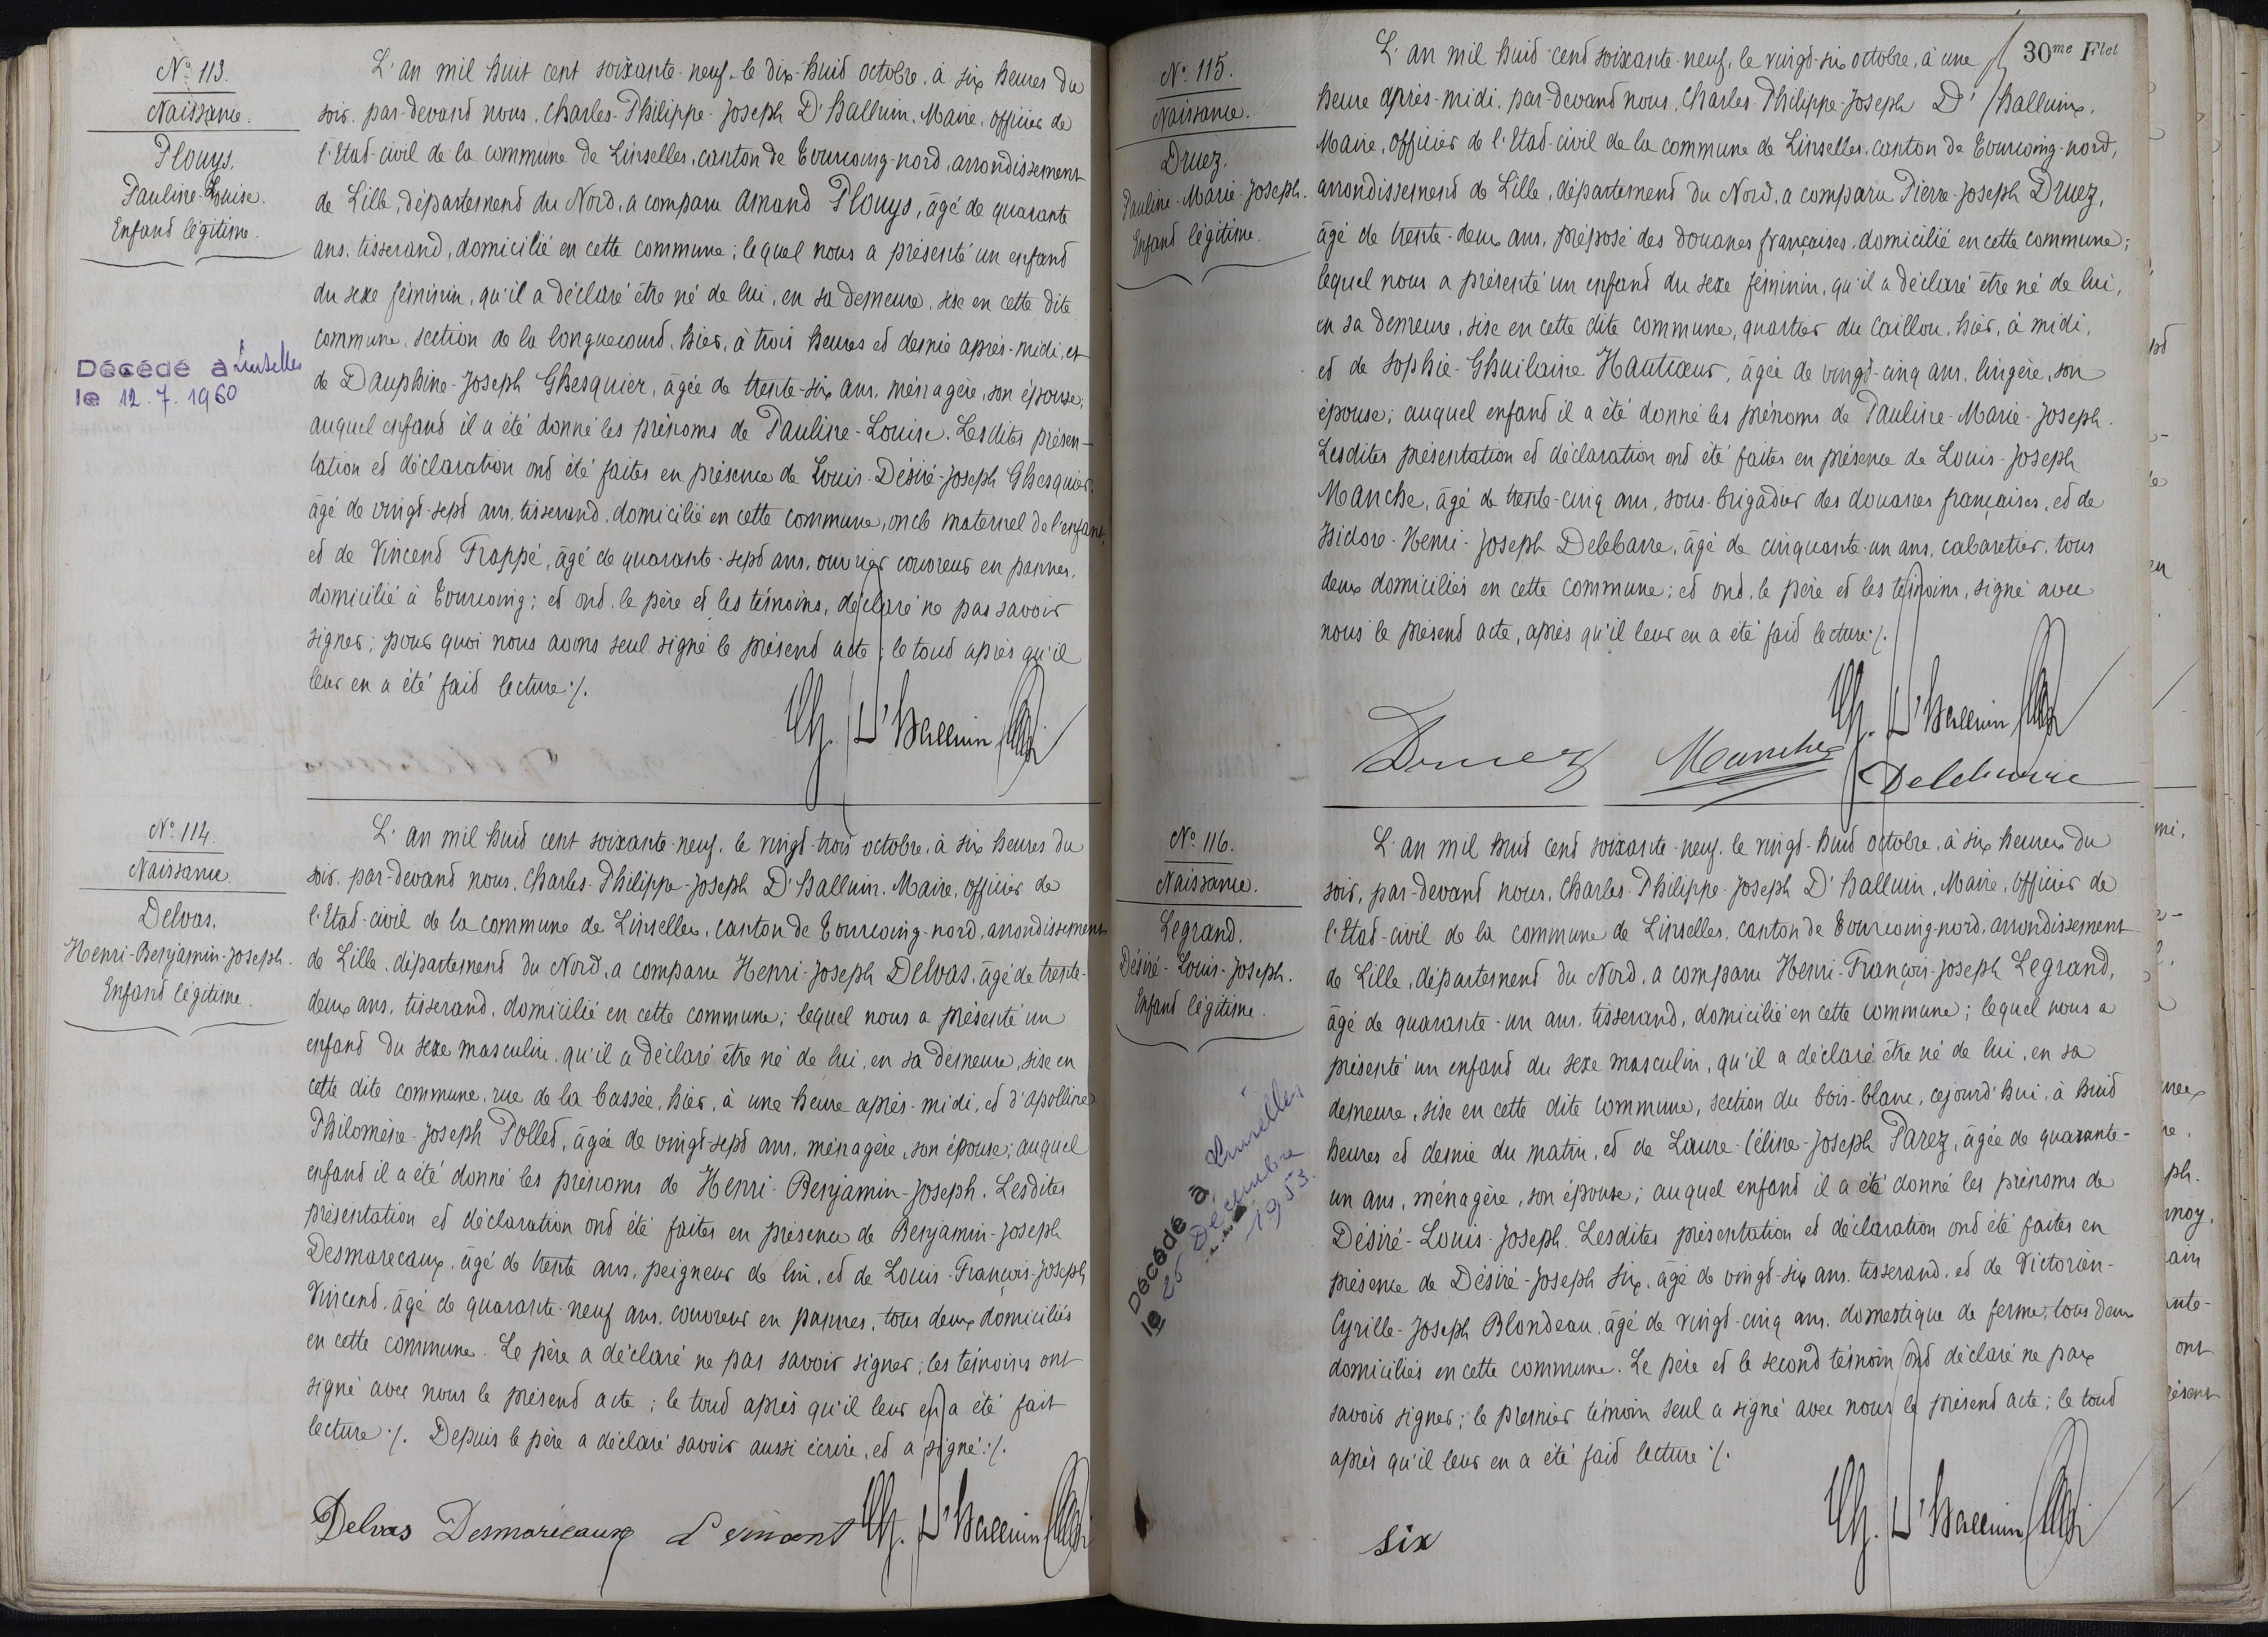 N.° 113.
Naissance.
Plouys.
Pauline-Louise.
Enfant légitime.
Décédé à Linselles
le 12.7.1960
L'an mil huit cent soixante-neuf, le dix-huit octobre, à six heures du
soir, par-devant nous, Charles-Philippe-Joseph D'halluin, Maire, officier de
l'Etat-civil de la commune de Linselles, canton de Tourcoing-nord, arrondissement
de Lille, département du Nord, a comparu Amand Plouys, âgé de quarante
ans, tisserand, domicilié en cette commune; lequel nous a présenté un enfant
du sexe féminin, qu'il a déclaré être né de lui, en sa demeure, sise en cette dite
commune, section de la longuecourt, hier, à trois heures et demie après-midi, et
de Dauphine-Joseph Ghesquier, âgée de trente-six ans, ménagère, son épouse;
auquel enfant il a été donné les prénoms de Pauline-Louise. Lesdites présen-
tation et déclaration ont été faites en présence de Louis-Désiré-Joseph Ghesquier,
âgé de vingt-sept ans, tisserand, domicilié en cette commune, oncle maternel de l'enfant,
et de Vincent Frappé, âgé de quarante-sept ans, ouvrier couvreur en pannes,
domicilié à Tourcoing; et ont, le père et les témoins, déclaré ne pas savoir
signer; pour quoi nous avons seul signé le présent acte; le tout après qu'il
leur en a été fait lecture ./.
Ch. D'halluin
N.° 114.
Naissance.
Delvas.
Henri-Benjamin-Joseph.
Enfant légitime.
L'an mil huit cent soixante-neuf, le vingt-trois octobre, à six heures du
soir, par-devant nous, Charles-Philippe-Joseph D'halluin, Maire, officier de
l'Etat-civil de la commune de Linselles, canton de Tourcoing-nord, arrondissement
de Lille, département du Nord, a comparu Henri-Joseph Delvas, âgé de trente-
deux ans, tisserand, domicilié en cette commune; lequel nous a présenté un
enfant du sexe masculin, qu'il a déclaré être né de lui, en sa demeure, sise en
cette dite commune, rue de la bassée, hier, à une heure après-midi, et d'apolline-
Philomène-Joseph Pollet, âgée de vingt-sept ans, ménagère, son épouse; auquel
enfant il a été donné les prénoms de Henri-Benjamin-Joseph. Lesdites
présentation et déclaration ont été faites en présence de Benjamin-Joseph
Desmarecaux, âgé de trente ans, peigneur de lin, et de Louis-François-Joseph
Vincent, âgé de quarante-neuf ans, couvreur en pannes, tous deux domiciliés
en cette commune. Le père a déclaré ne pas savoir signer; les témoins ont
signé avec nous le présent acte; le tout après qu'il leur en a été fait
lecture ./. Depuis le père a déclaré savoir aussi écrire, et a signé ./.
Delvas Desmarécaux Ch. D'halluin
30me Flet
N.° 115.
Naissance.
Druez.
Pauline-Marie-Joseph.
Enfant légitime.
L'an mil huit cent soixante-neuf, le vingt-six octobre, à une
heure après-midi, par-devant nous, Charles-Philippe-Joseph D'halluin,
Maire, officier de l'Etat-civil de la commune de Linselles, canton de Tourcoing-nord,
arrondissement de Lille, département du Nord, a comparu Pierre-Joseph Druez,
âgé de trente-deux ans, préposé des douanes françaises, domicilié en cette commune;
lequel nous a présenté un enfant du sexe féminin, qu'il a déclaré être né de lui,
en sa demeure, sise en cette dite commune, quartier du Caillou, hier, à midi,
et de Sophie-Ghuilaine Hautcœur, âgée de vingt-cinq ans, lingère, son
épouse; auquel enfant il a été donné les prénoms de Pauline-Marie-Joseph.
Lesdites présentation et déclaration ont été faites en présence de Louis-Joseph
Manche, âgé de trente-cinq ans, sous-brigadier des douanes françaises, et de
Isidore-Henri-Joseph Delebarre, âgé de cinquante-un ans, cabaretier, tous
deux domiciliés en cette commune; et ont, le père et les témoins, signé avec
nous le présent acte, après qu'il leur en a été fait lecture ./.
Ch. D'halluin
Druez Manche Delebarre
N.° 116.
Naissance.
Legrand.
Désiré-Louis-Joseph.
Enfant légitime.
Décédé à Linselles
le 26 Décembre
1953.
L'an mil huit cent soixante-neuf, le vingt-huit octobre, à six heures du
soir, par-devant nous, Charles-Philippe-Joseph D'halluin, Maire, officier de
l'Etat-civil de la commune de Linselles, canton de Tourcoing-nord, arrondissement
de Lille, département du Nord, a comparu Henri-François-Joseph Legrand,
âgé de quarante-un ans, tisserand, domicilié en cette commune; lequel nous a
présenté un enfant du sexe masculin, qu'il a déclaré être né de lui, en sa
demeure, sise en cette dite commune, section du bois-blanc, cejourd'hui, à huit
heures et demie du matin, et de Laure-Céline-Joseph Parez, âgée de quarante-
un ans, ménagère, son épouse; auquel enfant il a été donné les prénoms de
Désiré-Louis-Joseph. Lesdites présentation et déclaration ont été faites en
présence de Désiré-Joseph Six, âgé de vingt-six ans, tisserand, et de Victorien-
Cyrille-Joseph Blondeau, âgé de vingt-cinq ans, domestique de ferme, tous deux
domiciliés en cette commune. Le père et le second témoin ont déclaré ne pas
savoir signer; le premier témoin seul a signé avec nous le présent acte; le tout
après qu'il leur en a été fait lecture ./.
Six Ch. D'halluin